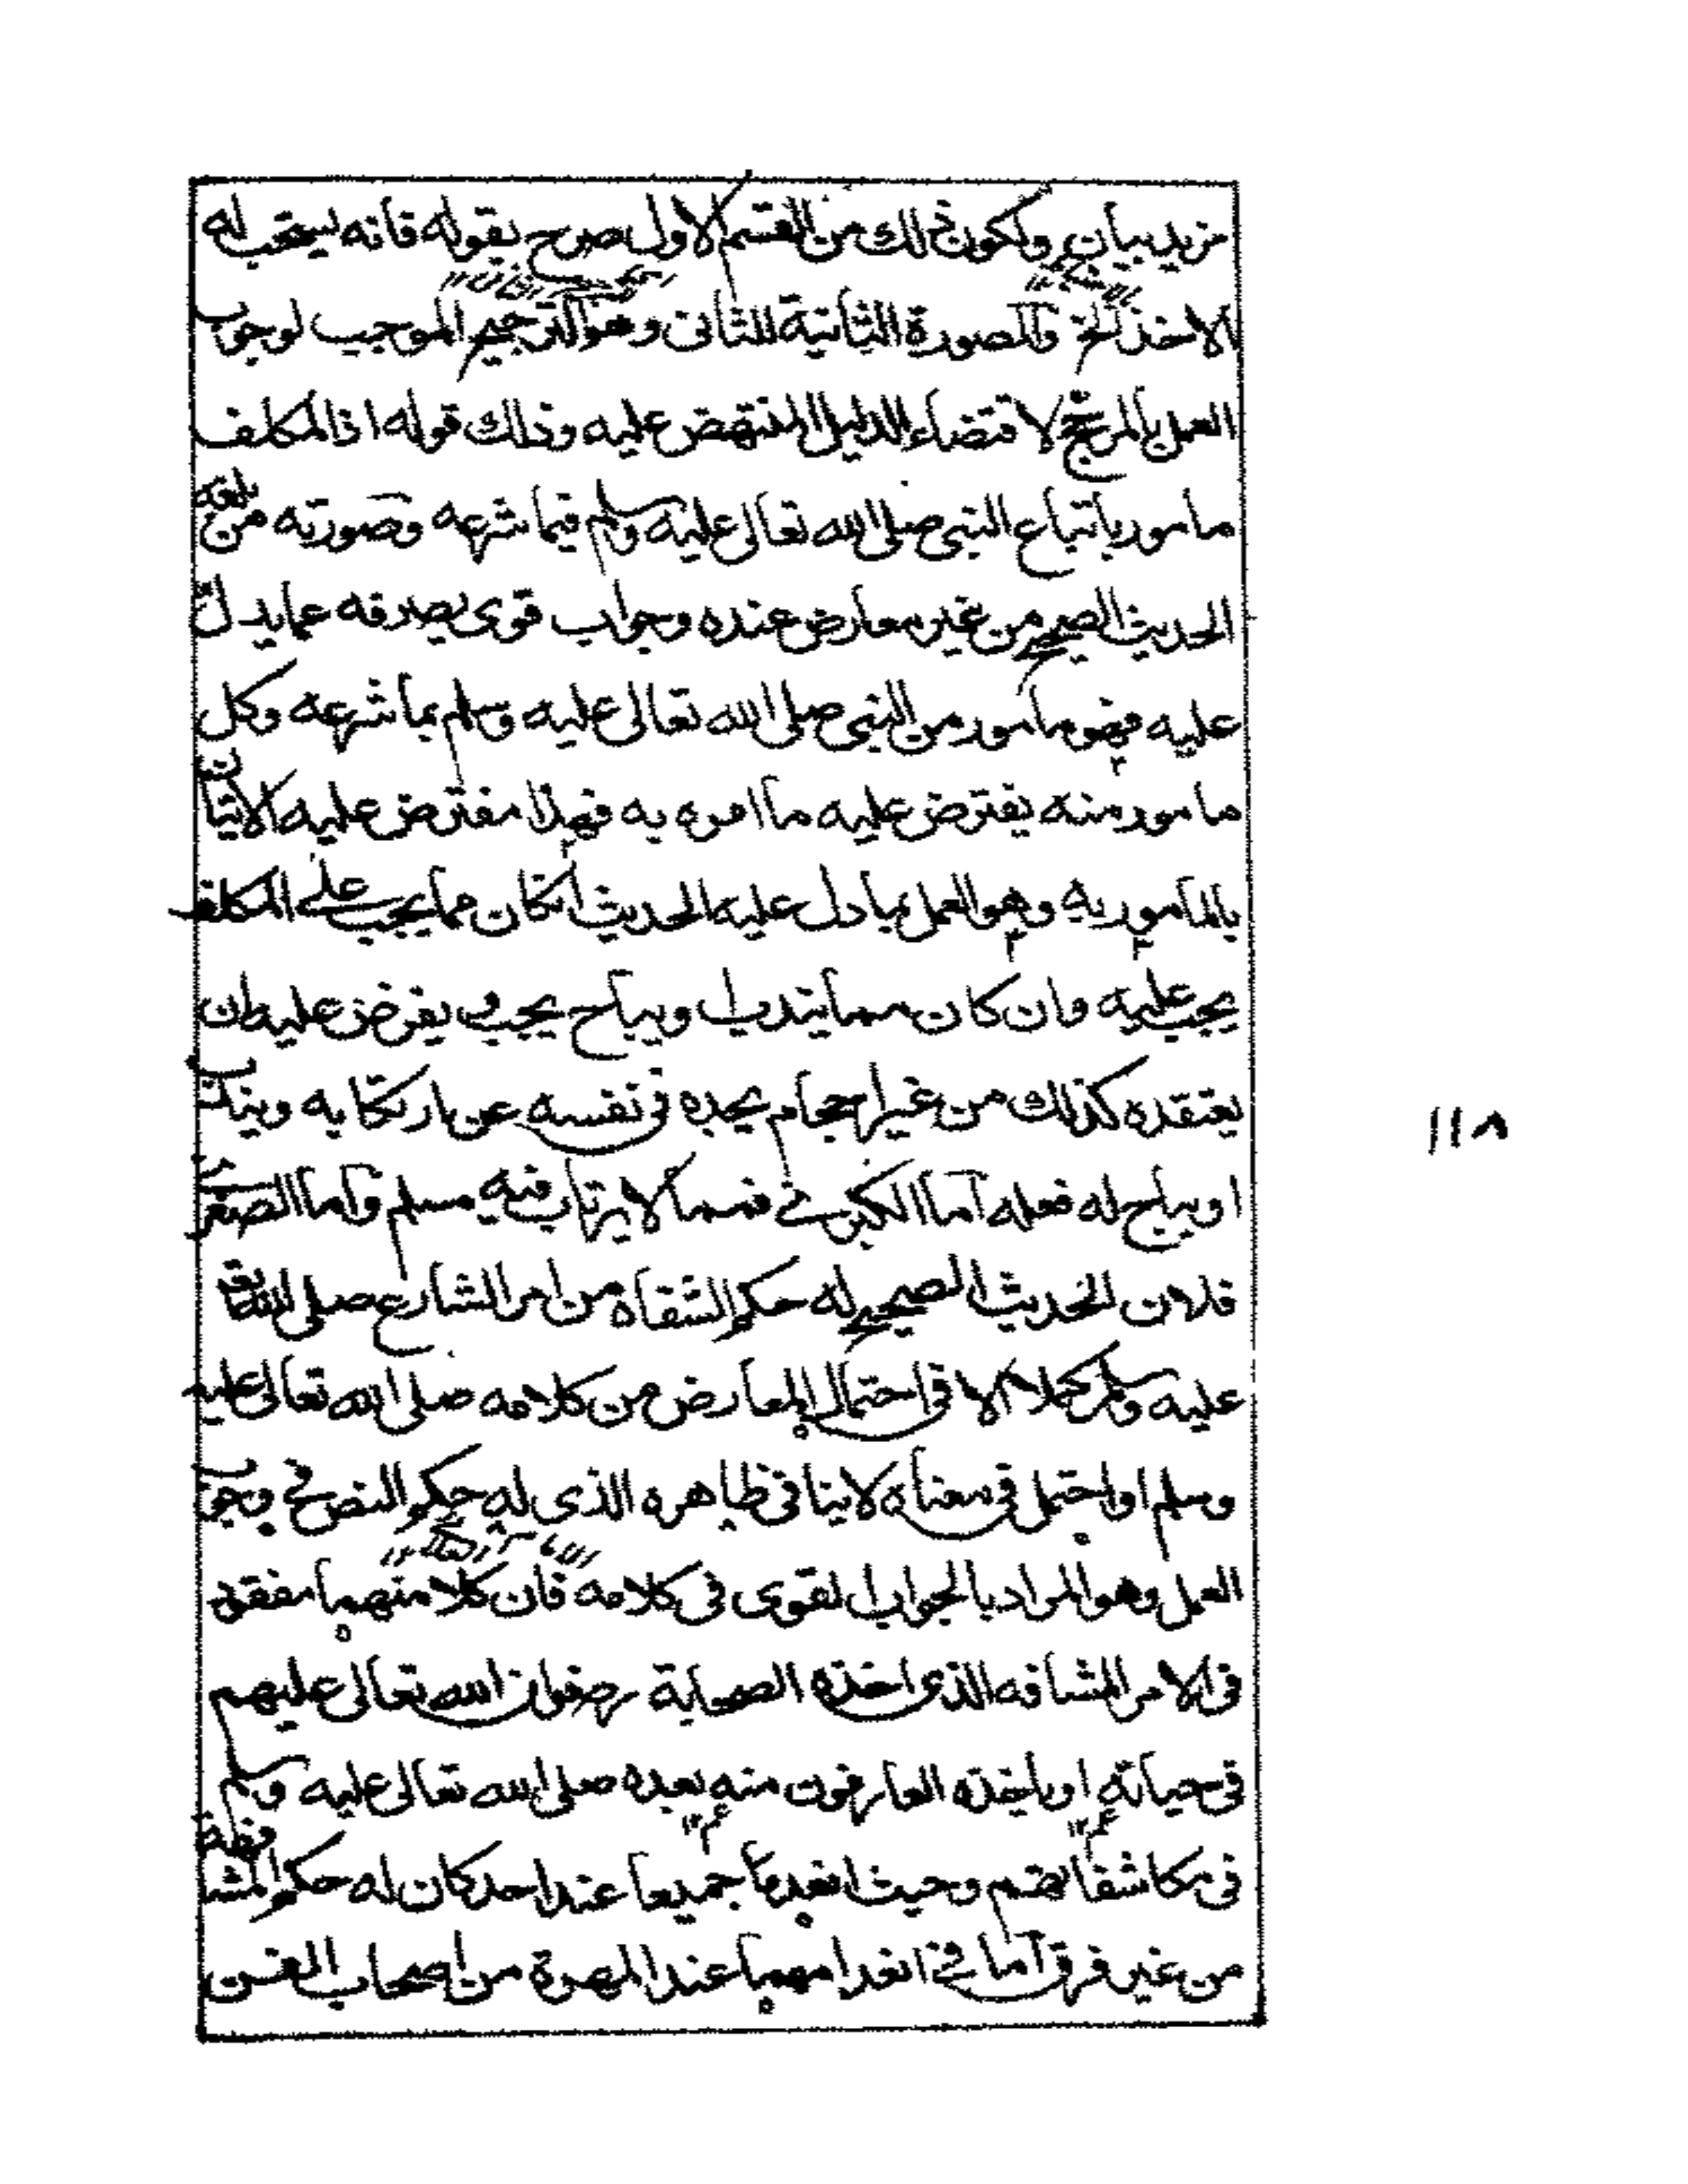 مزيد بيان ولكون ذلك من القسم الاول صرح بقوله فانه يستحب له
الاخذ الخ والصورة الثانية للثانى وهو الترجيح الموجب لوجوب
العمل بالمرجح لاقتضاء الدليل المنتهض عليه وذلك قوله اذ المكلف
مامور باتباع النبى صلى الله تعالى عليه وسلم فيما شرعه وصورته من بلغه
الحديث الصحيح من غير معارض عنده وجواب قوى يصرفه عما يدل
عليه فهو مامور من النبى صلى الله تعالى عليه وسلم بما شرعه وكل
مامور منه يفترض عليه ما امره به فهذا مفترض عليه الاتيان
بالمامور به وهو العمل بما دل عليه الحديث انكان مما يجب على المكلف
يجب عليه وان كان مما يندب او يباح يجب و يفرض عليه ان
يعتقده كذلك من غير احجام يجده فى نفسه عن ارتكابه ويندب
او يباح له فعله اما الكبرى فمما لا يرتاب فيه مسلم واما الصغرى
فلان الحديث الصحيح له حكم الشفاه من امر الشارع صلى الله تعالى
عليه وسلم بحملا الا فى احتمال المعارض من كلامه صلى الله تعالى عليه
وسلم او احتمل فى معناه لا ينافى ظاهره الذى له حكم النص فى وجوب
العمل وهو المراد بالجواب القوى فى كلامه فان كلا منهما مفقود
فى الامر المشافه الذى اخذه الصحابة رضوان الله تعالى عليهم
فى حياته او ياخذه العارفون منه بعده صلى الله تعالى عليه وسلم
فى مكاشفاتهم وحيث انعدما جميعا عند احد كان له حكم المشافهة
من غير فرق اما فى انعدامهما عند المهرة من اصحاب الفن
١١٨